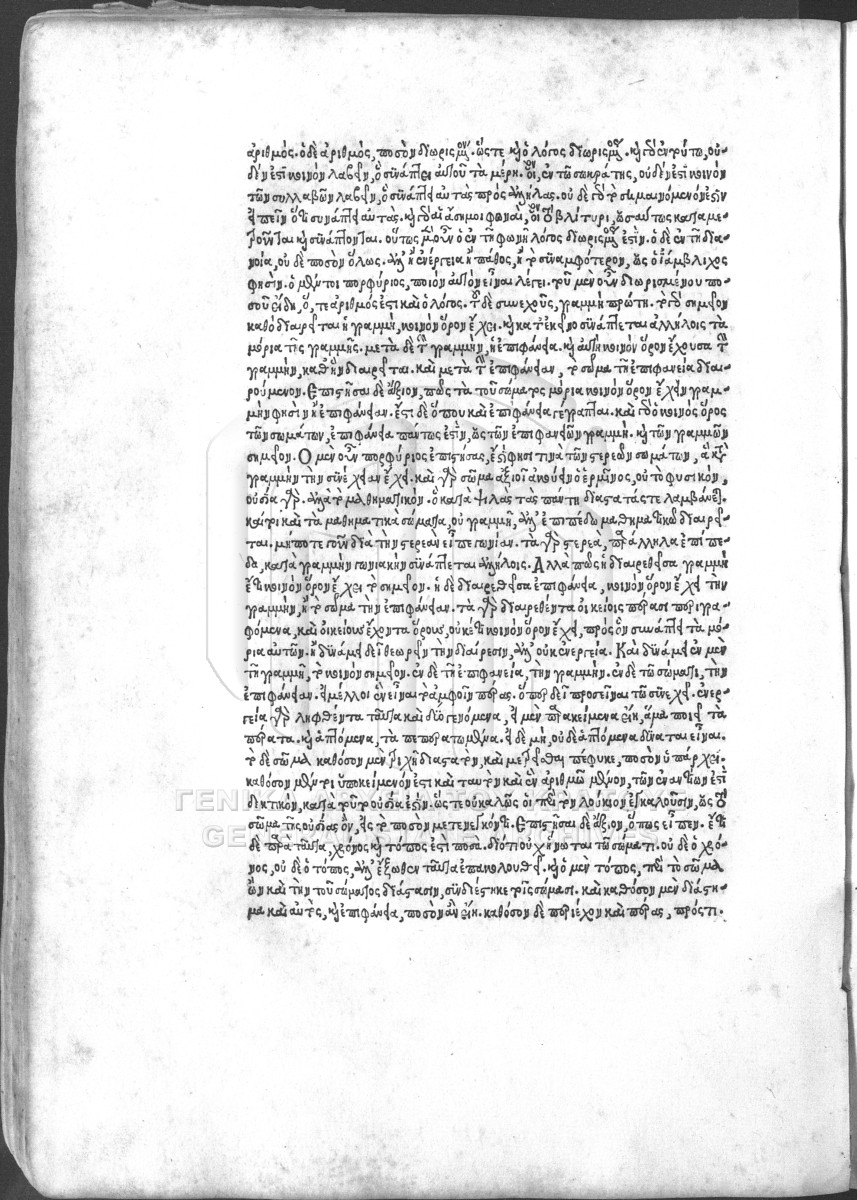 ἀριθμός. ὁ δὲ ἀριθμός, ποσὸν διωρισμένον. ὥστε καὶ ὁ λόγος διωρισμένον. καὶ γὰρ ἐν τούτῳ, οὐ-
δέν ἐστι κοινὸν λαβεῖν, ὃ συνάπτει αὐτοῦ τὰ μέρη. οἷον, ἐν τῷ σωκράτης, οὐδέν ἐστι κοινὸν
τῶν συλλαβῶν λαβεῖν, ὃ συνάπτει αὐτὰς πρὸς ἀλλήλας. οὐδὲ γὰρ τὸ σημαινόμενον ἐστὶν
εἰπεῖν ὅτι συνάπτει αὐτάς. καὶ γὰρ αἱ ἄσημοι φωναὶ, οἷον τὸ βλίτυρι, ὡσαύτως καταμε-
τροῦνται καὶ συνάπτονται. οὕτως μὲν οὖν ὁ ἐν τῇ φωνῇ λόγος διωρισμένον ἐστίν. ὁ δὲ ἐν τῇ δια-
νοίᾳ, οὐδὲ ποσὸν ὅλως. ἀλλ' ἢ ἐνέργεια ἢ πάθος, ἢ τὸ συναμφότερον, ὡς ὁ ἰάμβλιχος
φησίν. ὁ μέντοι πορφύριος, ποιὸν αὐτὸν εἶναι λέγει. τοῦ μὲν οὖν διωρισμένου πο-
σοῦ εἴδη, ὅ, τε ἀριθμός ἐστι καὶ ὁ λόγος. τοῦ δὲ συνεχοῦς, γραμμὴ πρώτη. τὸ γὰρ σημεῖον
καθὸ διαιρεῖται ἡ γραμμή, κοινὸν ὅρον ἔχει. καὶ κατ' ἐκεῖνο συνάπτεται ἀλλήλοις τὰ
μόρια τῆς γραμμῆς. μετὰ δὲ τὴν γραμμήν, ἡ ἐπιφάνεια. καὶ αὐτὴ κοινὸν ὅρον ἔχουσα τὴν
γραμμήν, καθ' ἣν διαιρεῖται. καὶ μετὰ τὴν ἐπιφάνειαν, τὸ σῶμα τῇ ἐπιφανείᾳ διαι-
ρούμενον. Ἐπιστῆσαι δὲ ἄξιον, πῶς τὰ τοῦ σώματος μόρια κοινὸν ὅρον ἔχειν γραμ-
μήν φησιν ἢ ἐπιφάνειαν. ἔστι δὲ ὅπου καὶ ἐπιφάνεια γέγραπται. καὶ γὰρ ὁ κοινὸς ὅρος
τῶν σωμάτων, ἐπιφάνεια πάντως ἐστὶν, ὡς τῶν ἐπιφανειῶν γραμμή. καὶ τῶν γραμμῶν
σημεῖον. Ὁ μὲν οὖν πορφύριος ἐπιστήσας, ἔστι φησί τινα τῶν στερεῶν σωμάτων, ἃ κατὰ
γραμμὴν τὴν συνέχειαν ἔχει. καὶ γὰρ σῶμα ἀξιοῖ ἀκούειν ὁ ἑρμῖνος, οὐ τὸ φυσικόν,
οὐσία γάρ. ἀλλὰ τὸ μαθηματικόν. ὃ κατὰ ψιλὰς τὰς πάντη διαστάσεις λαμβάνεται.
καίτοι καὶ τὰ μαθηματικὰ σώματα, οὐ γραμμῇ, ἀλλ' ἐπιπέδῳ μαθηματικῶς διαιρεῖ-
ται. μήποτε οὖν διὰ τὴν στερεὰν εἶπε γωνίαν. τὰ γὰρ στερεὰ, παράλληλα ἐπίπε-
δα, κατὰ γραμμὴν γωνιακὴν συνάπτεται ἀλλήλοις. Ἀλλὰ πῶς ἡ διαιρεθεῖσα γραμμὴ
ἔτι κοινὸν ὅρον ἔχει τὸ σημεῖον. ἡ δὲ διαιρεθεῖσα ἐπιφάνεια, κοινὸν ὅρον ἔχει τὴν
γραμμήν, ἢ τὸ σῶμα τὴν ἐπιφάνειαν. τὰ γὰρ διαιρεθέντα οἰκείοις πέρασι περιγρα-
φόμενα, καὶ οἰκείους ἔχοντα ὅρους, οὐκέτι κοινὸν ὅρον ἔχει, πρὸς ὃν συνάπτει τὰ μό-
ρια αὐτῶν. ἢ δυνάμει δεῖ θεωρεῖν τὴν διαίρεσιν, ἀλλ' οὐκ ἐνεργείᾳ. Καὶ δυνάμει ἐν μὲν
τῇ γραμμῇ, τὸ κοινὸν σημεῖον. ἐν δὲ τῇ ἐπιφανείᾳ, τὴν γραμμήν. ἐν δὲ τῷ σώματι, τὴν
ἐπιφάνειαν. εἰ μέλλοι ἓν εἶναι τὸ ἀμφοῖν πέρας. ὅπερ δεῖ προσεῖναι τῷ συνεχεῖ. ἐνερ-
γείᾳ γὰρ ληφθέντα ταῦτα καὶ δύο γενόμενα, εἰ μὲν παρακείμενα εἴη, ἅμα ποιεῖ τὰ
πέρατα. καὶ ἁπτόμενα, τὰ πεπερατωμένα. εἰ δὲ μὴ, οὐδὲ ἁπτόμενα δύναται εἶναι.
τὸ δὲ σῶμα καθόσον μὲν τριχῇ διαστατὸν, καὶ μετρεῖσθαι πέφυκε, ποσὸν ὑπάρχει.
καθόσον μέντοι ὑποκείμενόν ἐστι καὶ ταυτὸν καὶ ἓν ἀριθμῷ μένον, τῶν ἐναντίων ἐστὶ
δεκτικόν, κατὰ τοῦτο οὐσία ἐστίν. ὥστε οὐ καλῶς οἱ περὶ τὸν λούκιον ἐγκαλοῦσιν, ὡς τὸ
σῶμα τῆς οὐσίας ὂν, εἰς τὸ ποσὸν μετενεγκόντι. Ἐπιστῆσαι δὲ ἄξιον, ὅπως εἶπεν. ἔτι
δὲ παρὰ ταῦτα, χρόνος καὶ τόπος ἐστὶ ποσά. διότι οὐχ ἥνωται τῷ σώματι. οὐδὲ ὁ χρό-
νος, οὐδὲ ὁ τόπος, ἀλλ' ἔξωθεν ταῦτα ἐπακολουθεῖ. καὶ ὁ μὲν τόπος, περὶ τὸ σῶμα
ὢν καὶ τὴν τοῦ σώματος διάστασιν, συνδιέστηκε τοῖς σώμασι. καὶ καθόσον μὲν διάστη-
μα καὶ αὐτὸς, καὶ ἐπιφάνεια, ποσὸν ἂν εἴη. καθόσον δὲ περιέχον καὶ πέρας, πρός τι.
ΓΕΝΙΚΑ ΑΡΧΕΙΑ ΤΟΥ ΚΡΑΤΟΥΣ
GENERAL STATE ARCHIVES